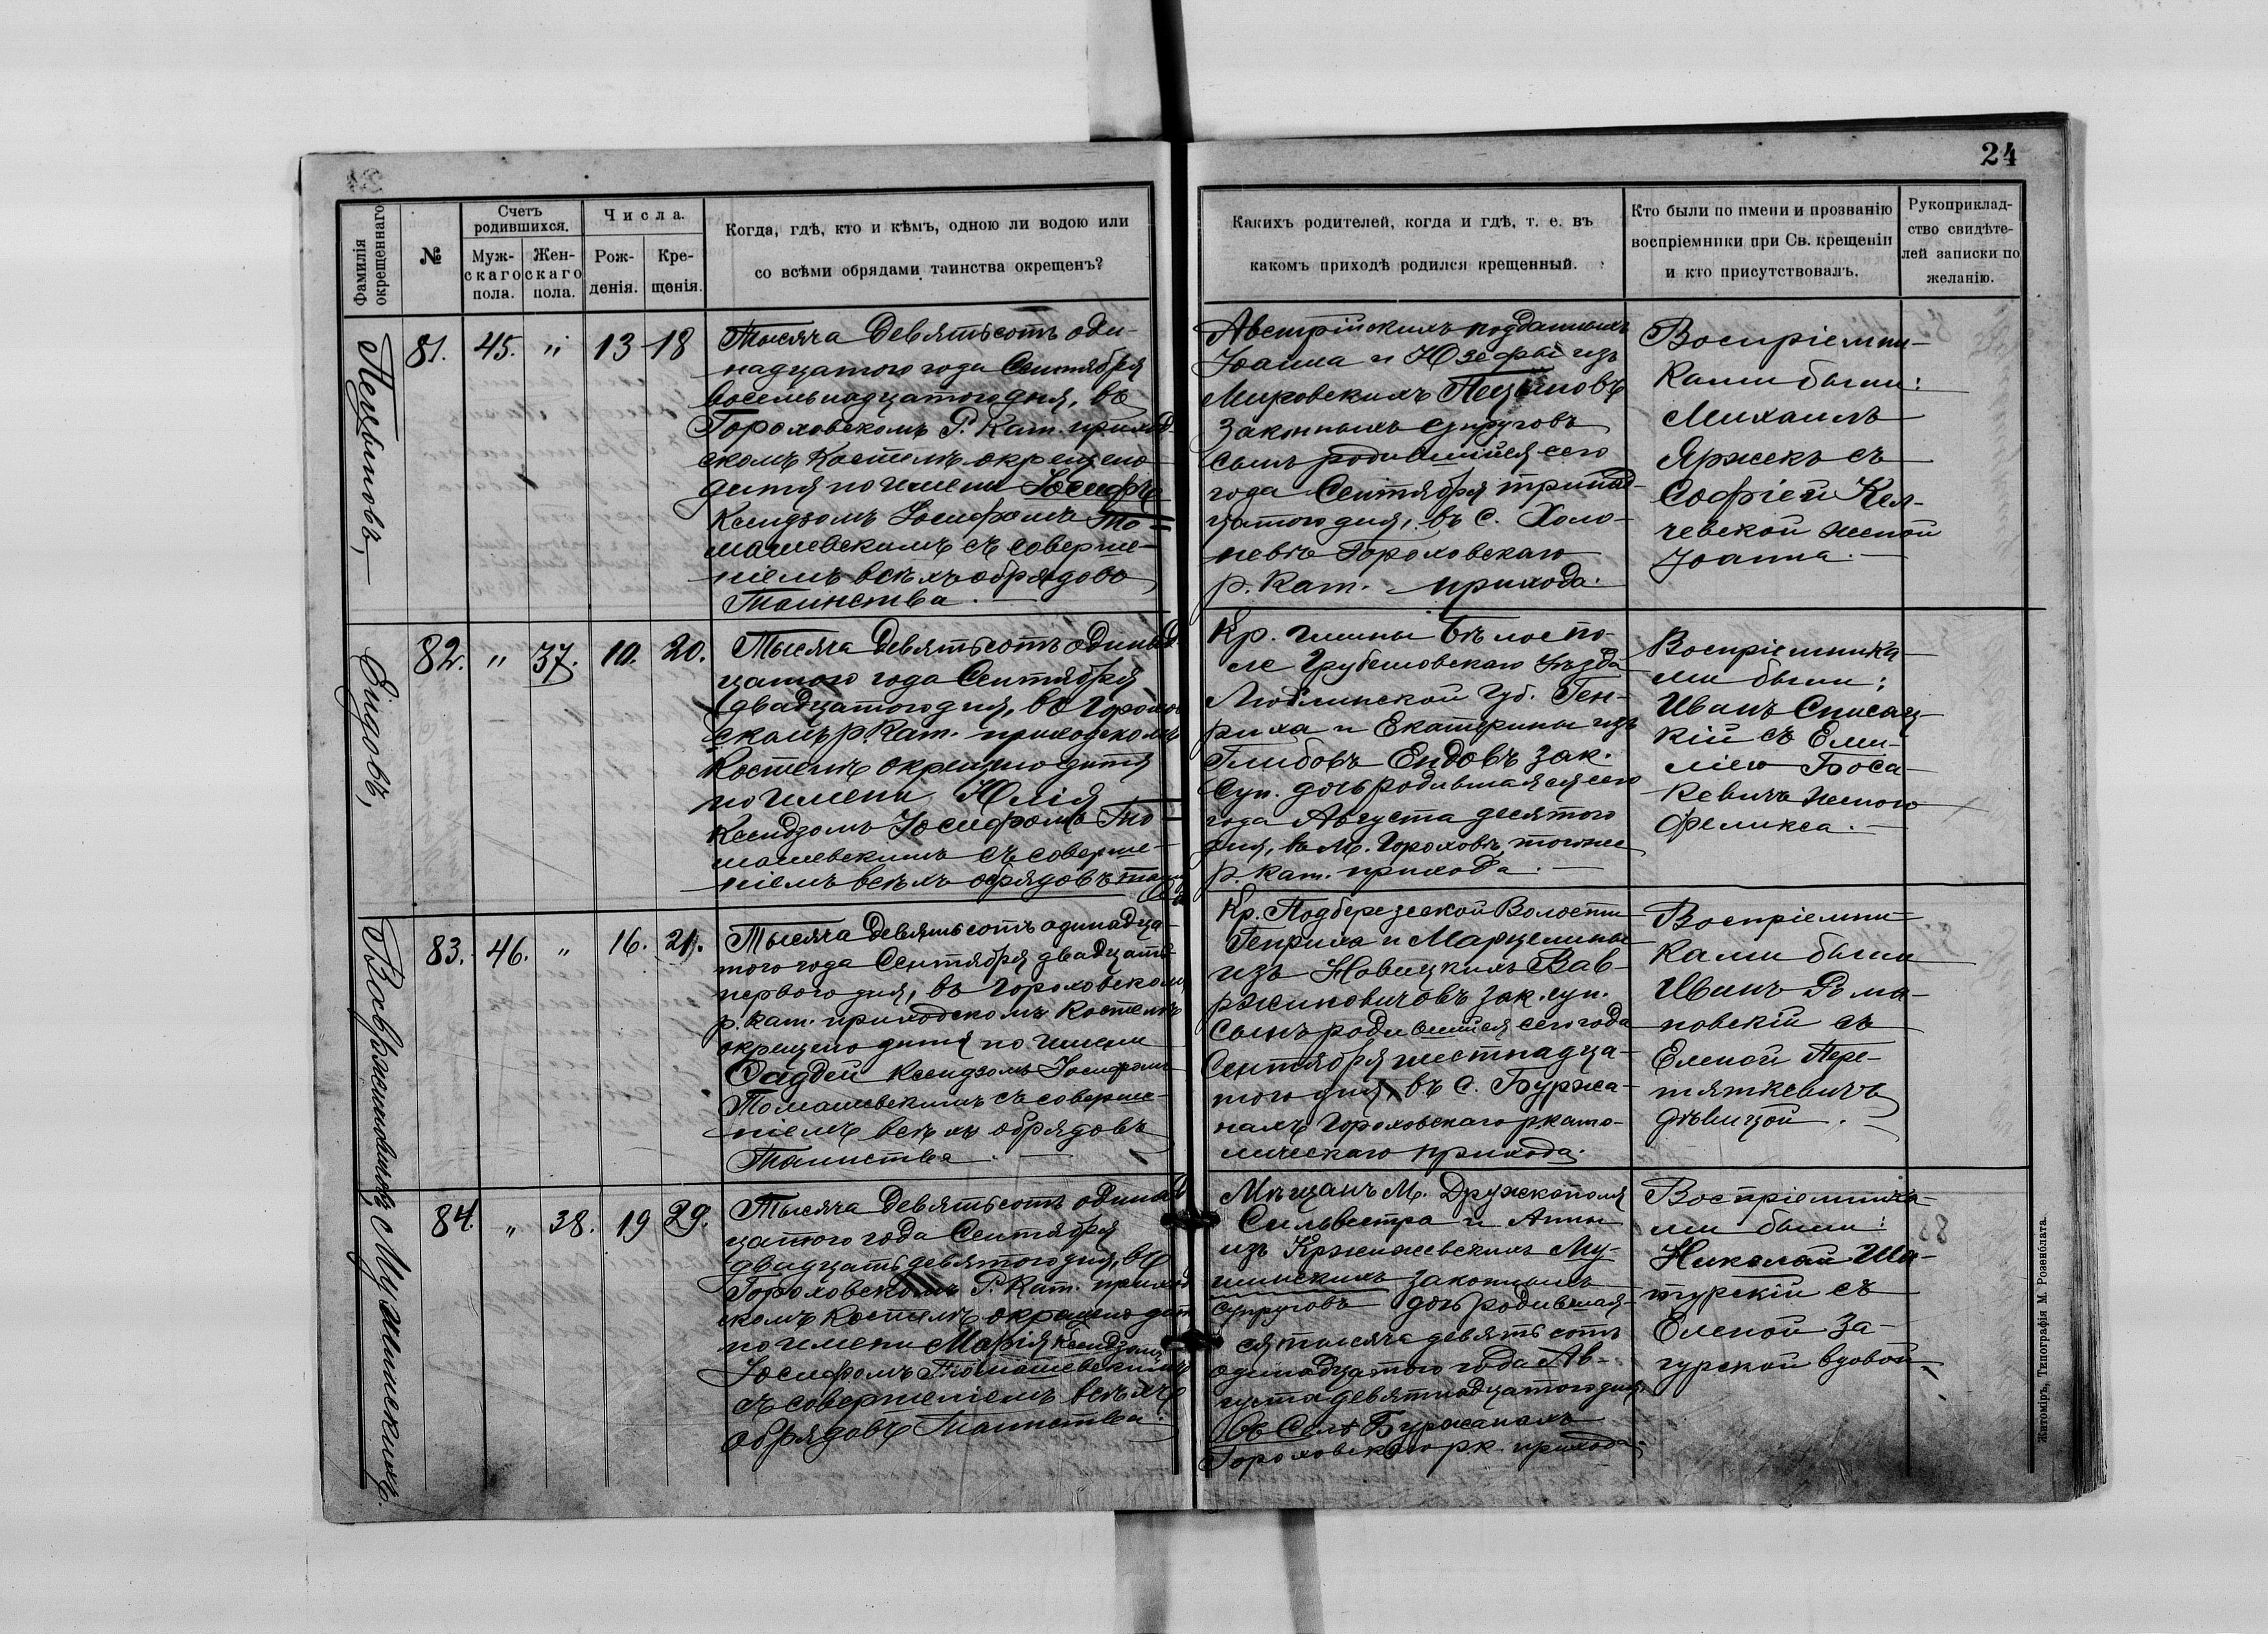 24
Фамилія окрещеннаго
№
Счетъ родившихся.
Муж-скаго пола.
Жен-скаго пола.
Числа.
Рож-денія.
Кре-щенія.
Когда, гдѣ, кто и кѣмъ, одною ли водою или
со всѣми обрядами таинства окрещенъ?
Какихъ родителей, когда и гдѣ, т. е. въ
какомъ приходѣ родился крещенный.
Кто были по имени и прозванію
воспріемники при Св. крещеніи
и кто присутствовалъ.
Рукоприклад-
ство свидѣте-
лей записки по
желанію.
81. 45. " 13 18
Тысяча Девятьсотъ оди-
надцатого года Сентября
восемьнадцатого дня, въ
Гороховскомъ Р. Кат. приход-
скомъ Костелѣ окрещено
дитя по имени Іосифъ
Ксендзомъ Іосифомъ То-
машевскимъ съ соверше-
ніемъ всѣхъ обрядовъ
Таинства.
Австрійскихъ подданныхъ
Іоанна и Юзефы изъ
Мировскихъ
Законныхъ Супруговъ
сынъ родившійся сего
года Сентября тринад-
цатого дня, въ С. Холо-
невѣ Гороховскаго
р. Кат. прихода.
Воспріемни-
ками были:
Михаилъ
Яржекъ съ
Софіей Кел-
чевской женой
Іоанна.
Ендовъ,
82. " 37. 10. 20.
Тысяча Девятьсотъ одинад-
цатого года Сентября
двадцатого дня, въ Горохов-
скомъ р. Кат. приходскомъ
Костелѣ окрещено дитя
по имени Юлія
Ксендзомъ Іосифомъ То-
машевскимъ съ соверше-
ніемъ всѣхъ обрядовъ таин
Кр. Гмины Бѣлополе
Грубешовскаго уѣзда
Люблинской Губ. Ген-
риха и Екатерины изъ
Глибовъ Ендовъ Зак.
Суп. дочь родившаяся сего
года Августа десятого
дня, въ М. Гороховѣ, тогоже
р. Кат. прихода.
Воспріемника-
ми были:
Иванъ Списац-
кій съ Еми-
ліею Боса-
кевичъ женою
Феликса.
Вавржиновичовъ,
83. 46. " 16. 21.
Тысяча девятьсотъ одинадца-
того года Сентября двадцать
первого дня, въ Гороховскомъ
р. кат. приходскомъ Костелѣ
окрещено дитя по имени
Фаддей Ксендзомъ Іосифомъ
Томашевскимъ съ соверше-
ніемъ всѣхъ обрядовъ
Таинства.
Кр. Подберезской Волости
Генриха и Марцелины
изъ Новицкихъ Вав-
ржиновичовъ зак. суп.
Сынъ родившійся сего года
Сентября шестнадца-
того дня, въ С. Буржа-
нахъ Гороховскаго р. като-
лическаго прихода.
Воспріемни-
ками были
Иванъ Рома-
новскій съ
Еленой Пере-
тяткевичъ
дѣвицой.
Мушинскихъ.
84. " 38. 19 29.
Тысяча Девятьсотъ одинад-
цатого года Сентября
двадцать девятого дня, въ
Гороховскомъ Р. Кат. приход
скомъ Костелѣ окрещено дитя
по имени Марія Ксендзомъ
Іосифомъ Томашевскимъ
съ совершеніемъ всѣхъ
обрядовъ Таинства.
Мѣщанъ М. Дружкополя
Сильвестра и Анны
изъ Кржижевскихъ Му-
шинскихъ законныхъ
супруговъ дочь родившая-
ся тысяча девятьсотъ
одинадцатого года Ав-
густа девятнадцатого дня,
въ Селѣ Буржанахъ
Гороховскаго р. к. прихода.
Воспріемника-
ми были:
Николай Ша-
турскій съ
Еленой За-
гурской вдовой.
Житомиръ, Типографія М. Розенблата.